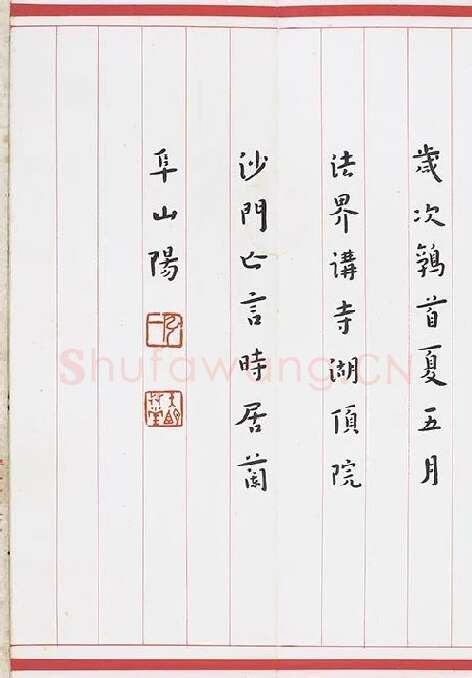 歲次鶉首夏五月
法界講寺湖頂院
沙門亡言時居蘭
阜山陽
Shufawang.CN